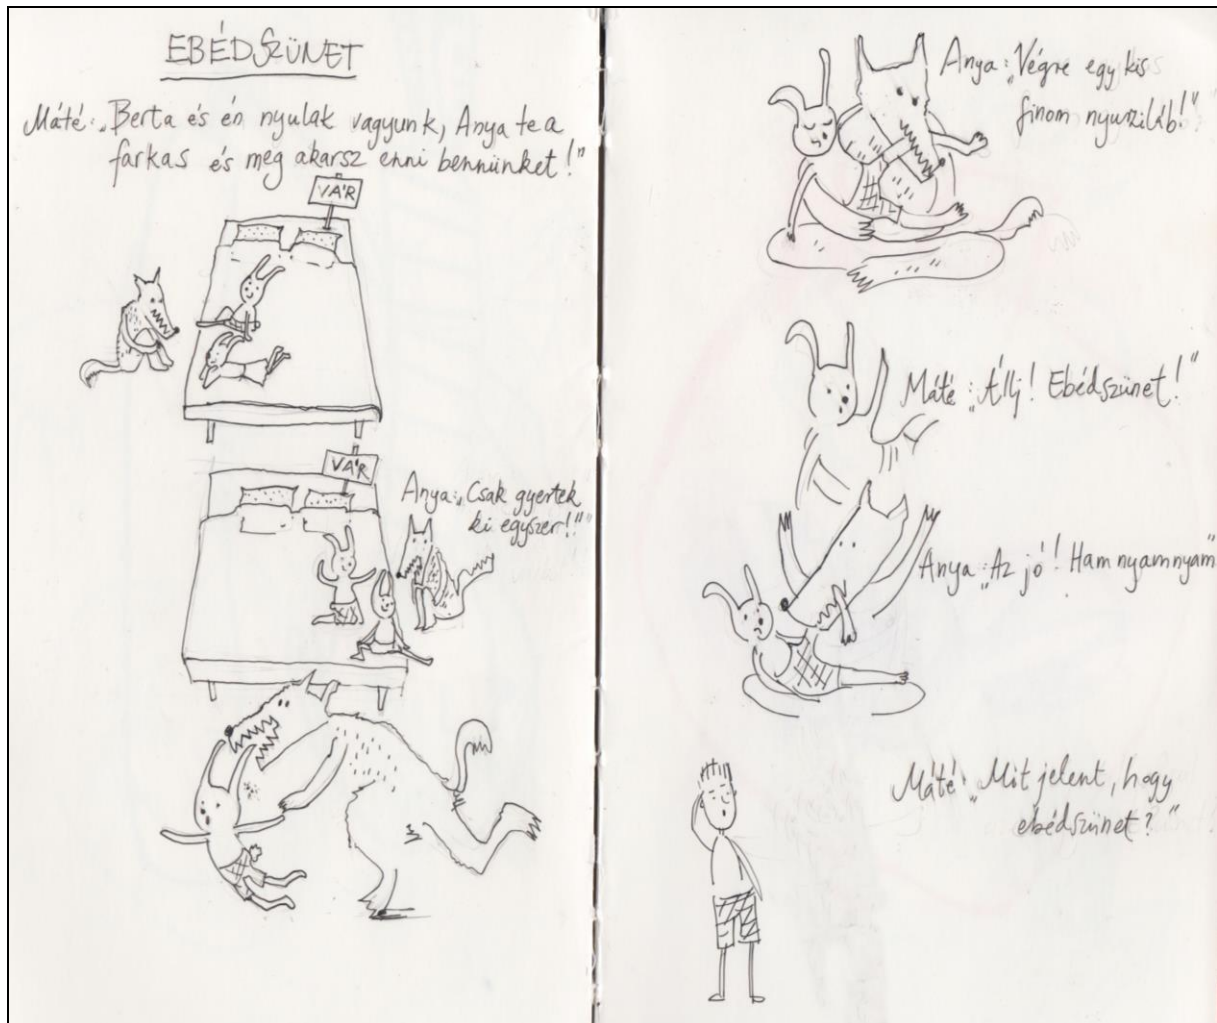 EBÉDSZÜNET
Máté: „Berta és én nyulak vagyunk, Anya te a
farkas és meg akarsz enni bennünket!”
VÁR
VÁR
Anya: „Csak gyertek
ki egyszer!”
Anya: „Végre egy kis
finom nyusziláb!”
Máté: „Állj! Ebédszünet!”
Anya: „Az jó! Ham nyamnyam”
Máté: „Mit jelent, hogy
ebédszünet?”